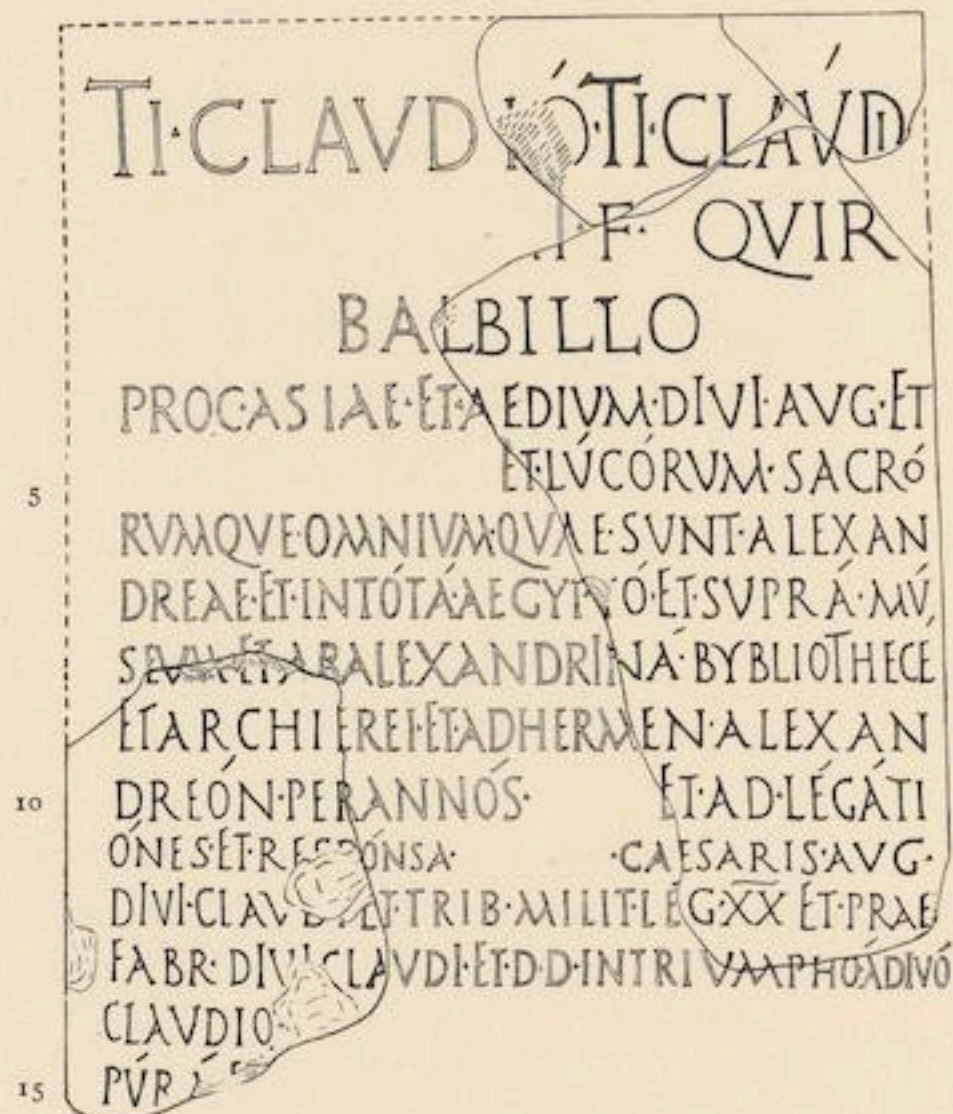 TI·CLAVDIÓ·TI·CLÁVDII
F· QVIR
BALBILLO
PROC·ASIAE·ET·AEDIVM·DIVI·AVG·ET
5 ET·LÚCÓRUM·SACRÓ
RVMQVE·OMNIVM·QVAE·SUNT·ALEXAN
DREAE·ET·IN·TÓTÁ·AEGYPTÓ·ET·SUPRÁ·MÚ
SEVM·ET·AB·ALEXANDRINÁ·BYBLIOTHECÉ
ET·ARCHIEREI·ET·AD·HERMEN·ALEXAN
10 DREÓN·PER·ANNÓS· ET·AD·LÉGÁTI
ÓNES·ET·RESPÓNSA· ·CAESARIS·AVG·
DIVI·CLAVDI·ET·TRIB·MILIT·LÉG·XX ET·PRAE
FABR·DIVI·CLAVDI·ET·D·D·IN·TRIVMPHO·Á·DIVÓ
CLAVDIO
15 PÚR